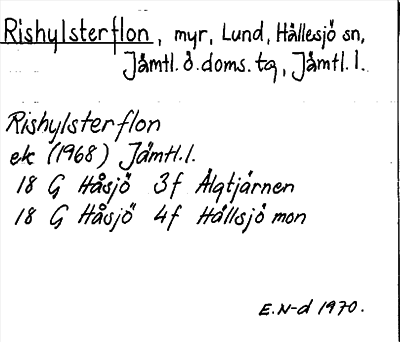 Rishylsterflon, myr, Lund, Hållesjö sn,
Jämtl. ö. doms. tg, Jämtl. l.
Rishylsterflon
ek (1968) Jämtl. l.
18 G Håsjö 3f Älgtjärnen
18 G Håsjö 4f Hållsjömon
E. N-d 1970.